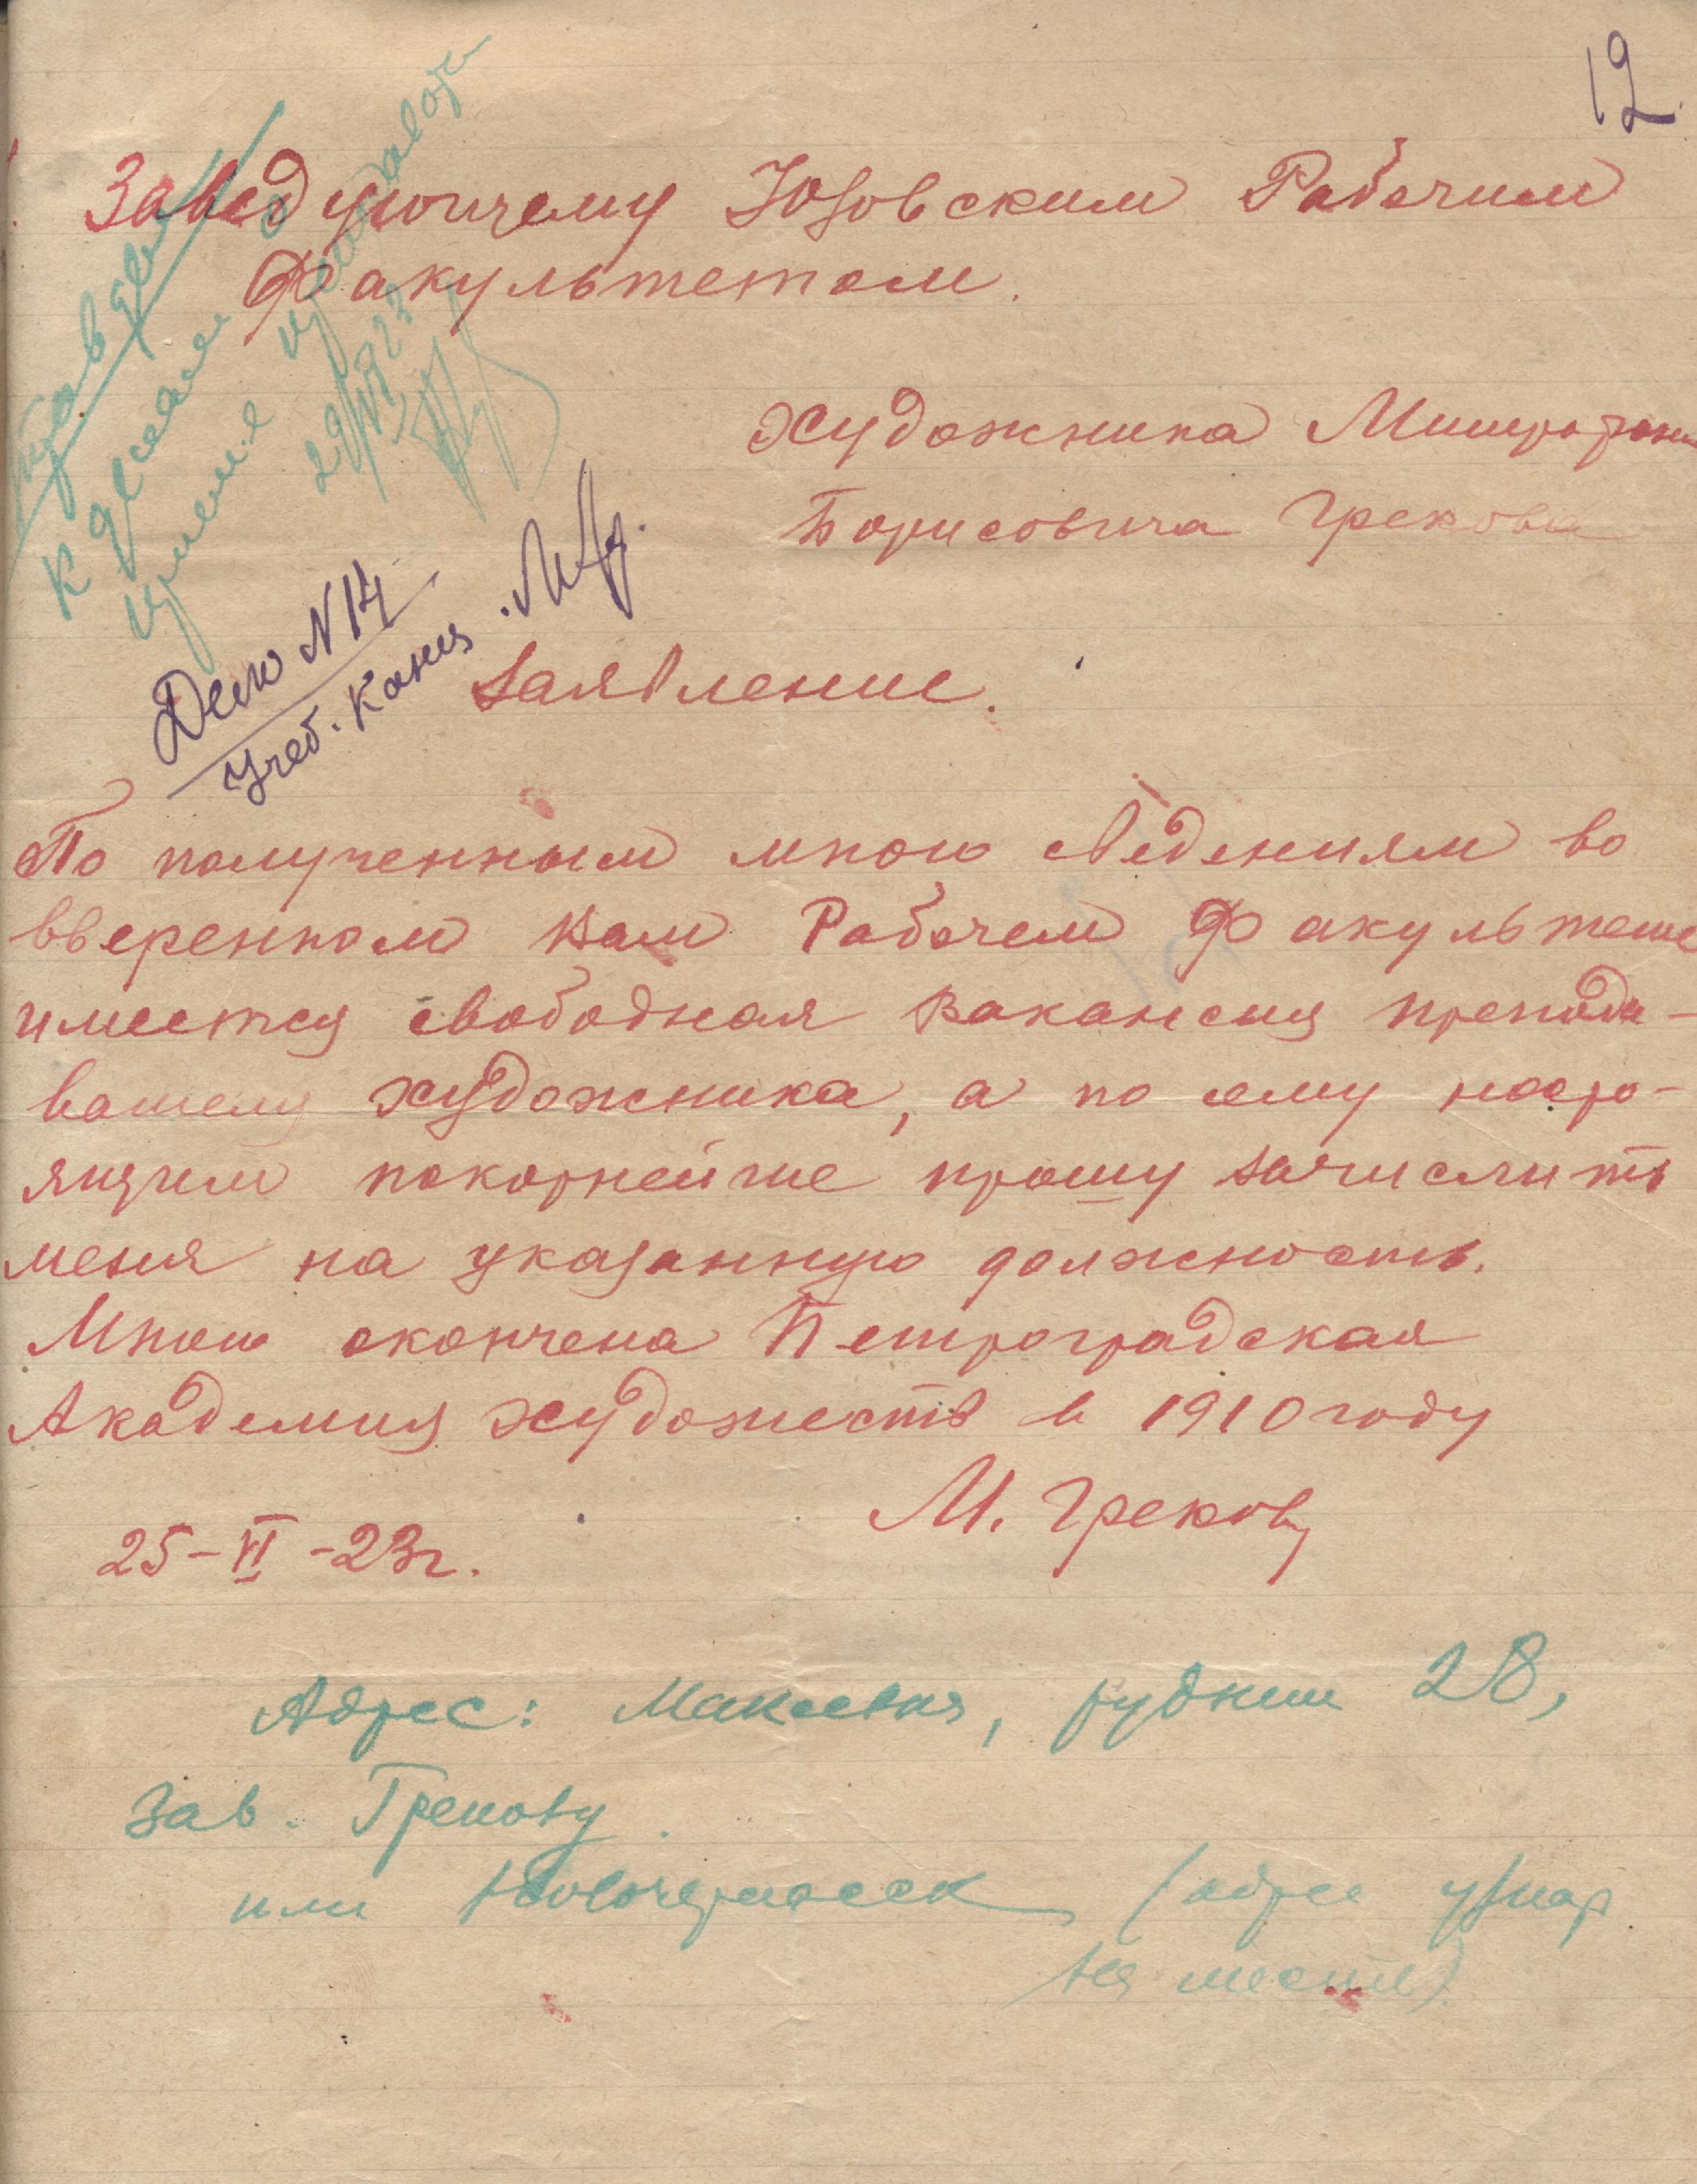 12
Заведующему Юзовским Рабочим
Факультетом.
Художника Митрофана
Борисовича Грекова
Заявление.
К делам о
29/VI 23
Дело N 14
Учеб. Канц.
По полученным мною сведениям во
вверенном Вам Рабочем Факультете
имеется свободная вакансия препода-
вателя художника, а по сему насто-
ящим покорнейше прошу зачислить
меня на указанную должность.
Мною окончена Петроградская
Академия Художеств в 1910 году
М. Греков
25-VI-23г.
Адрес: Макеевка, рудник 28,
Зав. Грекову
или Новочеркасск (адрес узнар
на месте)